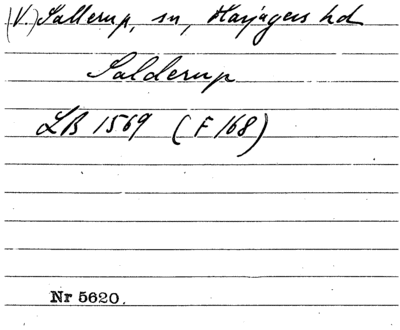 (V.) Sallerup, sn, Harjagers hd
Salderup
LB 1569 (F 168)
Nr 5620.